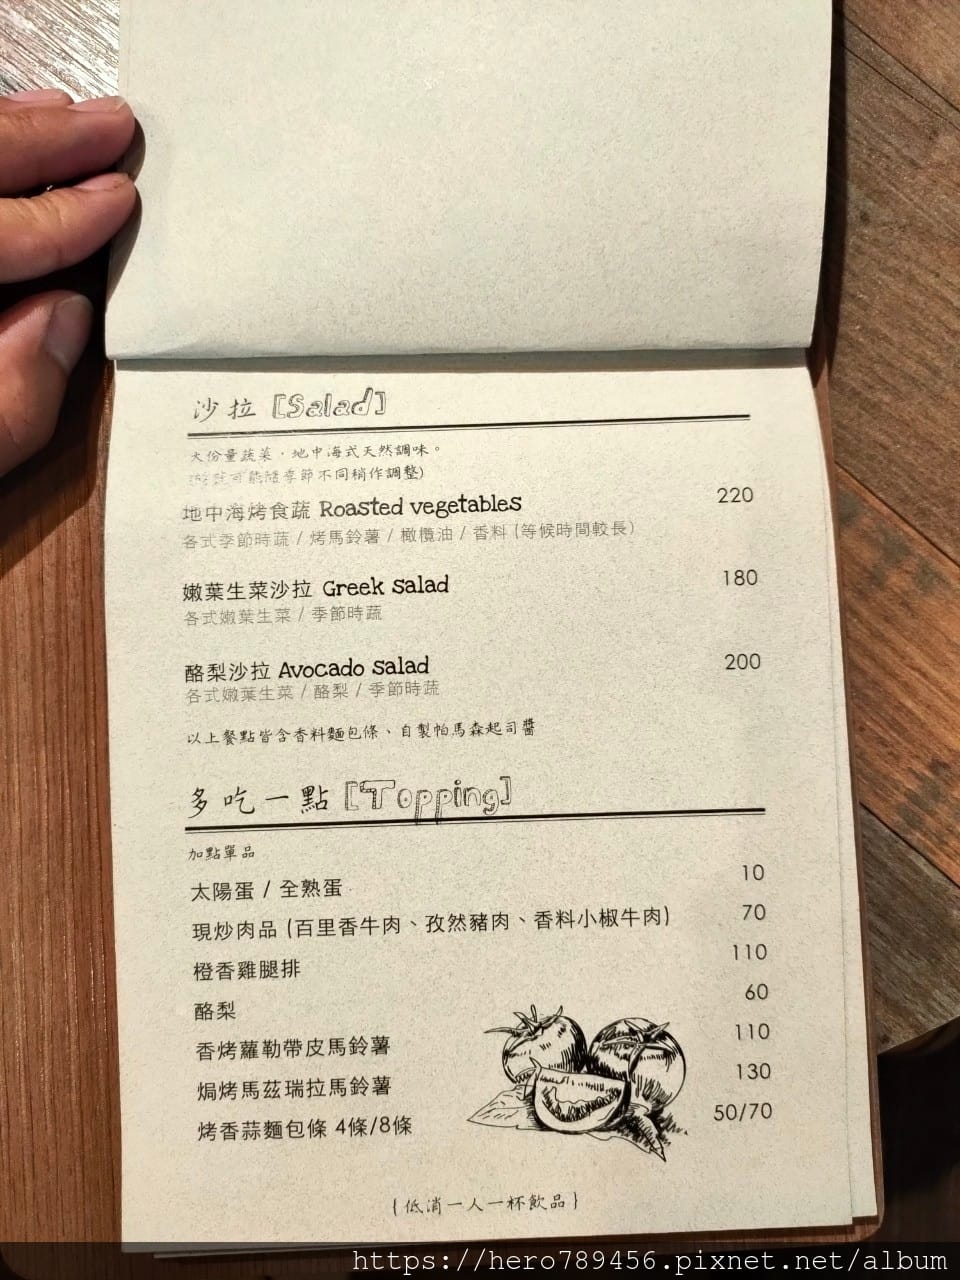 沙拉 [Salad]
大份量蔬菜，地中海式天然調味。
隨季節不同稍作調整)
地中海烤食蔬 Roasted vegetables 220
各式季節時蔬 / 烤馬鈴薯 / 橄欖油 / 香料 (等候時間較長)
嫩葉生菜沙拉 Greek salad 180
各式嫩葉生菜 / 季節時蔬
酪梨沙拉 Avocado salad 200
各式嫩葉生菜 / 酪梨 / 季節時蔬
以上餐點皆含香料麵包條、自製帕馬森起司醬
多吃一點 [Topping]
加點單品
太陽蛋 / 全熟蛋 10
現炒肉品 (百里香牛肉、孜然豬肉、香料小椒牛肉) 70
橙香雞腿排 110
酪梨 60
香烤蘿勒帶皮馬鈴薯 110
焗烤馬茲瑞拉馬鈴薯 130
烤香蒜麵包條 4條/8條 50/70
{ 低消一人一杯飲品 }
https://hero789456.pixnet.net/album